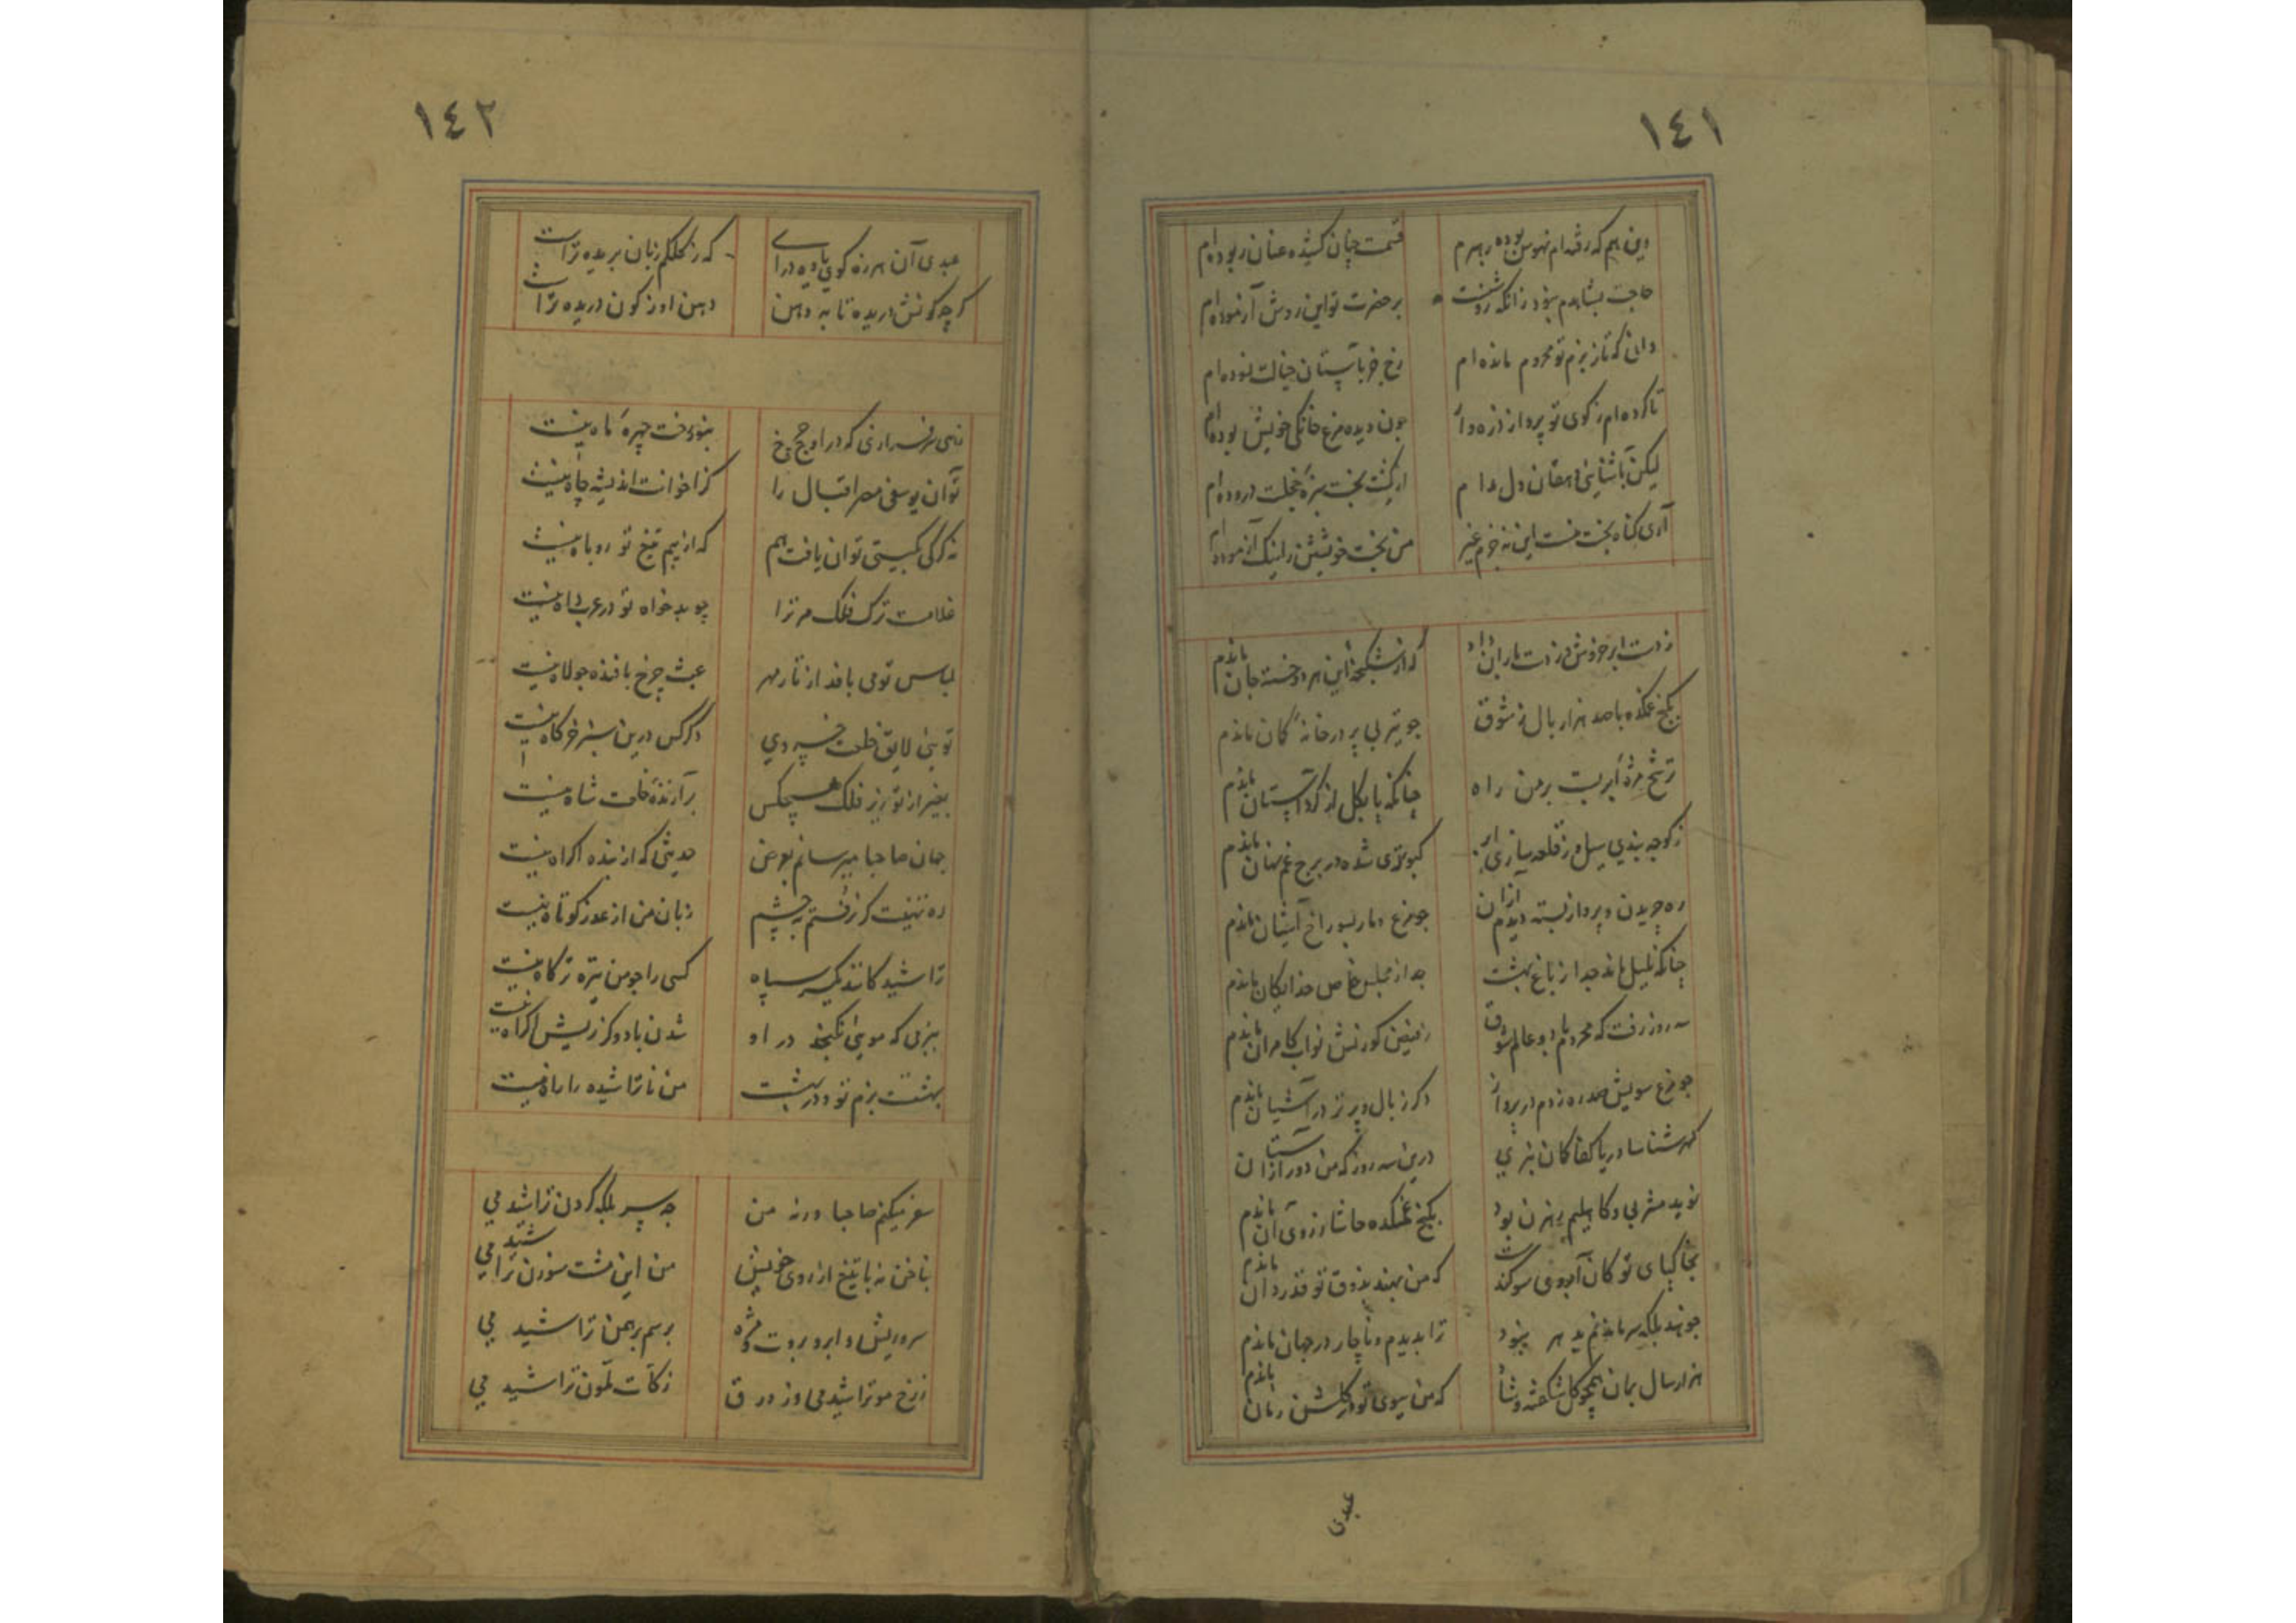 ١٤١
وین هم که رفته‌ام نبوس بوده رهبرم قسمت چنان کشیده عنان ربوده‌ام
حاجت بشاهدم نبود زانکه بر حضرت تو این روش آزموده‌ام
دانی که تا ز بزم تو محروم مانده‌ام رخ جز بآستان خیالت نسوده‌ام
تا کرده‌ام ز کوی تو پرواز ذره‌وار چون دیده مرغ خانگی خویش بوده‌ام
لیکن بآشنایی دهقان دل مدام از کشت بخت سبزهٔ خجلت دروده‌ام
آری گناه بخت منست این نه جرم غیر من بخت خویشتن را نیک آزموده‌ام
ز دست ابر خروش و ز دست باران داد که از شکنجهٔ این هر دو خسته جان ماندم
بکنج غمکده با صد هزار بال ز شوق چو تیر بی پر در خانهٔ کمان ماندم
ترشح مژهٔ ابر بست بر من راه چنانکه پا بگل از گرد آستان ماندم
ز کوچه بندی سیل و ز قلعه سازی ابر کبوتری شده در برج غم نهان ماندم
ره چریدن و پرواز بسته دیدم از آن چو مرغ و مار بسوراخ آشیان ماندم
چنانکه بلبل ماند جدا ز باغ بهشت جدا از مجلس خاص خدایگان ماندم
سه روز رفت که محروم با دو عالم شوق ز فیض کورنش نواب کامران ماندم
چو مرغ سویش صد ره زدم در پرواز دگر ز بال و پر در آشیان ماندم
گهر شناسا دریا کفا کان بذری درین سه روز که من دور از آن آستان
نوید مشربی و کاهلیم رهزن بود بکنج غمکده حاشا ز زوی آن ماندم
بخاکپای تو کان آبروی سوگند است که من بهند بذوق تو قدردان ماندم
چو هند بلکه سر ماندنم بدهر نبود ترا بدیدم و ناچار در جهان ماندم
هزار سال بمان همچو گل شکفته و شاد که من ببوی تو در گلشن زمان ماندم
عبدی
١٤٢
عبدی آن هرزه گوی یاوه درای که ز کلکم زبان بریده تراست
گرچه کونش دریده تا به دهن دهن او ز کون دریده تراست
زهی سرفرازی که در اوج چرخ بنور رخت چهرهٔ ماه نیست
تو آن یوسفی مصر اقبال را کز اخوانت اندیشهٔ چاه نیست
نه گرگی بگیتی توان یافت هم که از بیم تیغ تو روباه نیست
غلامست ترک فلک مر ترا چو بدخواه تو در عرب داه نیست
لباس تو می بافد از تار مهر عبث چرخ بافنده جولاه نیست
تویی لایق خلعت خسروی دگر کس درین سبز خرگاه نیست
بغیر از تو زیر فلک هیچکس برازندهٔ خلعت شاه نیست
جهان صاحبا میرسانم بعرض حدیثی که از بنده اکراه نیست
ره تهنیت گر نرفتم بچشم زبان من از عذر کوتاه نیست
تراشید کانند یکسر سپاه کسی را چو من تیره تر گاه نیست
ببزمی که مویی نگنجد در او شدن با دو گز ریش اکراه نیست
بهشتست بزم تو و در بهشت من ناتراشیده را راه نیست
سفر میکنم صاحبا ورنه من چه سر بلکه گردن تراشیدمی
بناخن نه با تیغ از روی خویش من این مشت سوزن تراشیدمی
سر و ریش و ابرو بروت و مژه برسم برهمن تراشیدمی
ز رخ مو تراشیدمی وز ورق زکات تمون تراشیدمی